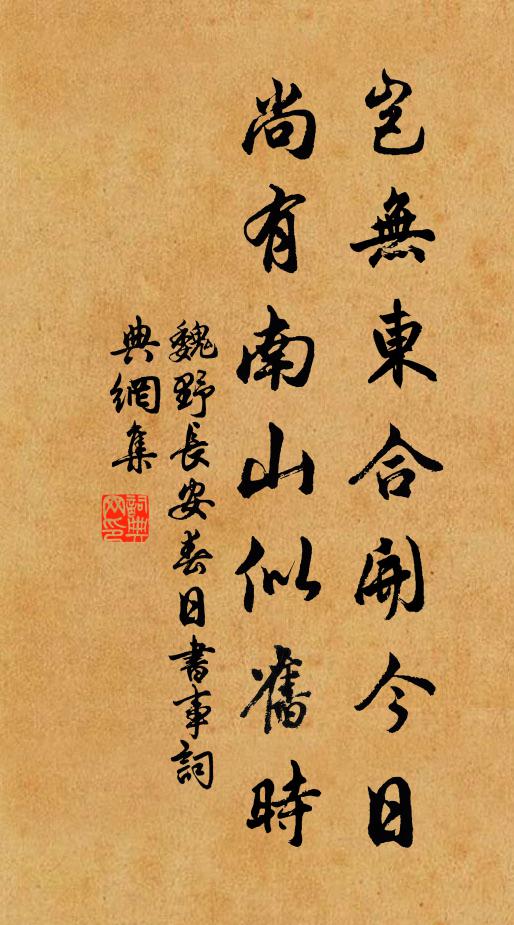 豈無東合開今日
尚有南山似舊時
魏野長安春日書事詞
典網集
詞典
网印